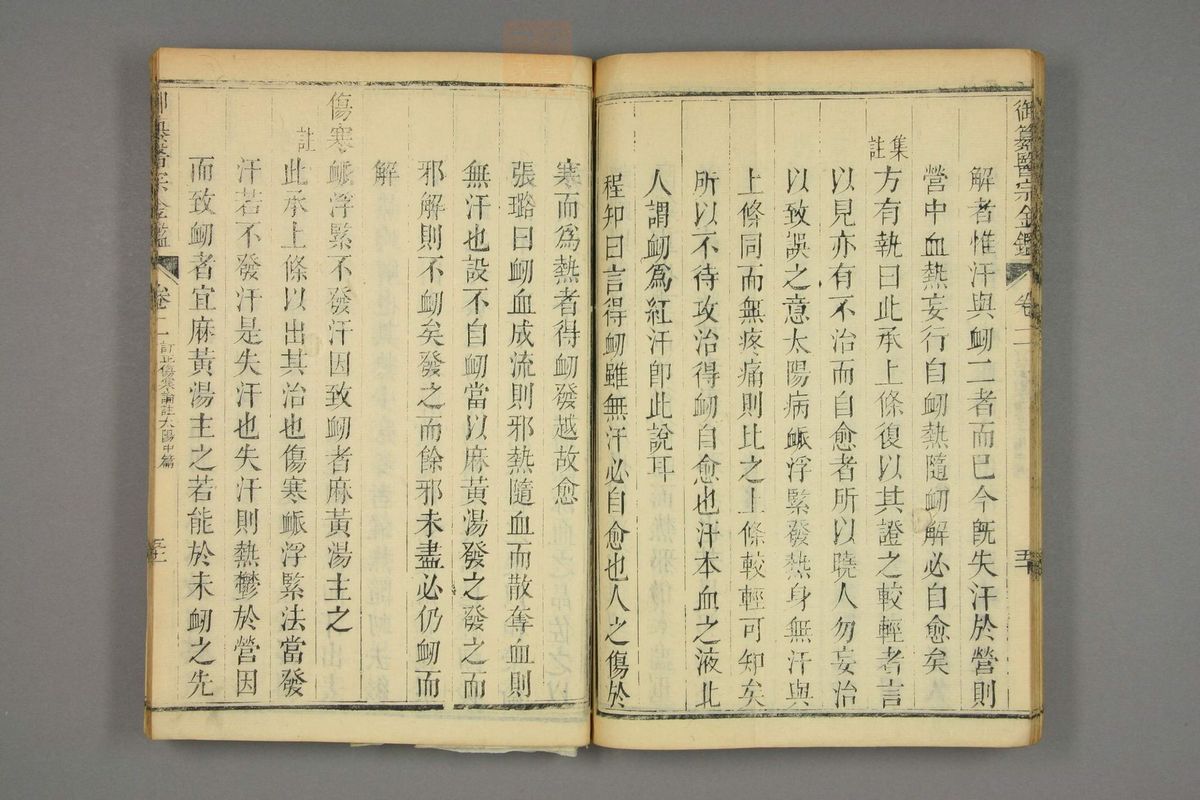 御纂醫宗金鑑 卷二 五
解者惟汗與衂二者而已今旣失汗於營則
營中血熱妄行自衂熱隨衂解必自愈矣
集註
方有執曰此承上條復以其證之較輕者言
以見亦有不治而自愈者所以曉人勿妄治
以致誤之意太陽病脈浮緊發熱身無汗與
上條同而無疼痛則比之上條較輕可知矣
所以不待攻治得衂自愈也汗本血之液北
人謂衂爲紅汗卽此說耳
程知曰言得衂雖無汗必自愈也人之傷於
寒而爲熱者得衂發越故愈
張璐曰衂血成流則邪熱隨血而散奪血則
無汗也設不自衂當以麻黃湯發之發之而
邪解則不衂矣發之而餘邪未盡必仍衂而
解
傷寒脈浮緊不發汗因致衂者麻黃湯主之
註
此承上條以出其治也傷寒脈浮緊法當發
汗若不發汗是失汗也失汗則熱鬱於營因
而致衂者宜麻黃湯主之若能於未衂之先
御纂醫宗金鑑 卷二 訂正傷寒論註太陽中篇